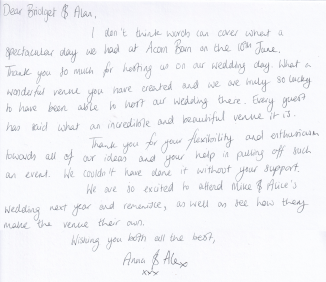 Dear Bridget & Alan,
I don't think words can cover what a
spectacular day we had at Acorn Barn on the 10th June.
Thank you so much for hosting us on our wedding day. What a
wonderful venue you have created and we are truly so lucky
to have been able to host our wedding there. Every guest
has said what an incredible and beautiful venue it is.
Thank you for your flexibility and enthusiasm
towards all of our ideas and your help in pulling off such
an event. We couldn't have done it without your support.
We are so excited to attend Mike & Alice's
wedding next year and reminisce, as well as see how they
make the venue their own.
Wishing you both all the best,
Anna & Alex
xxx